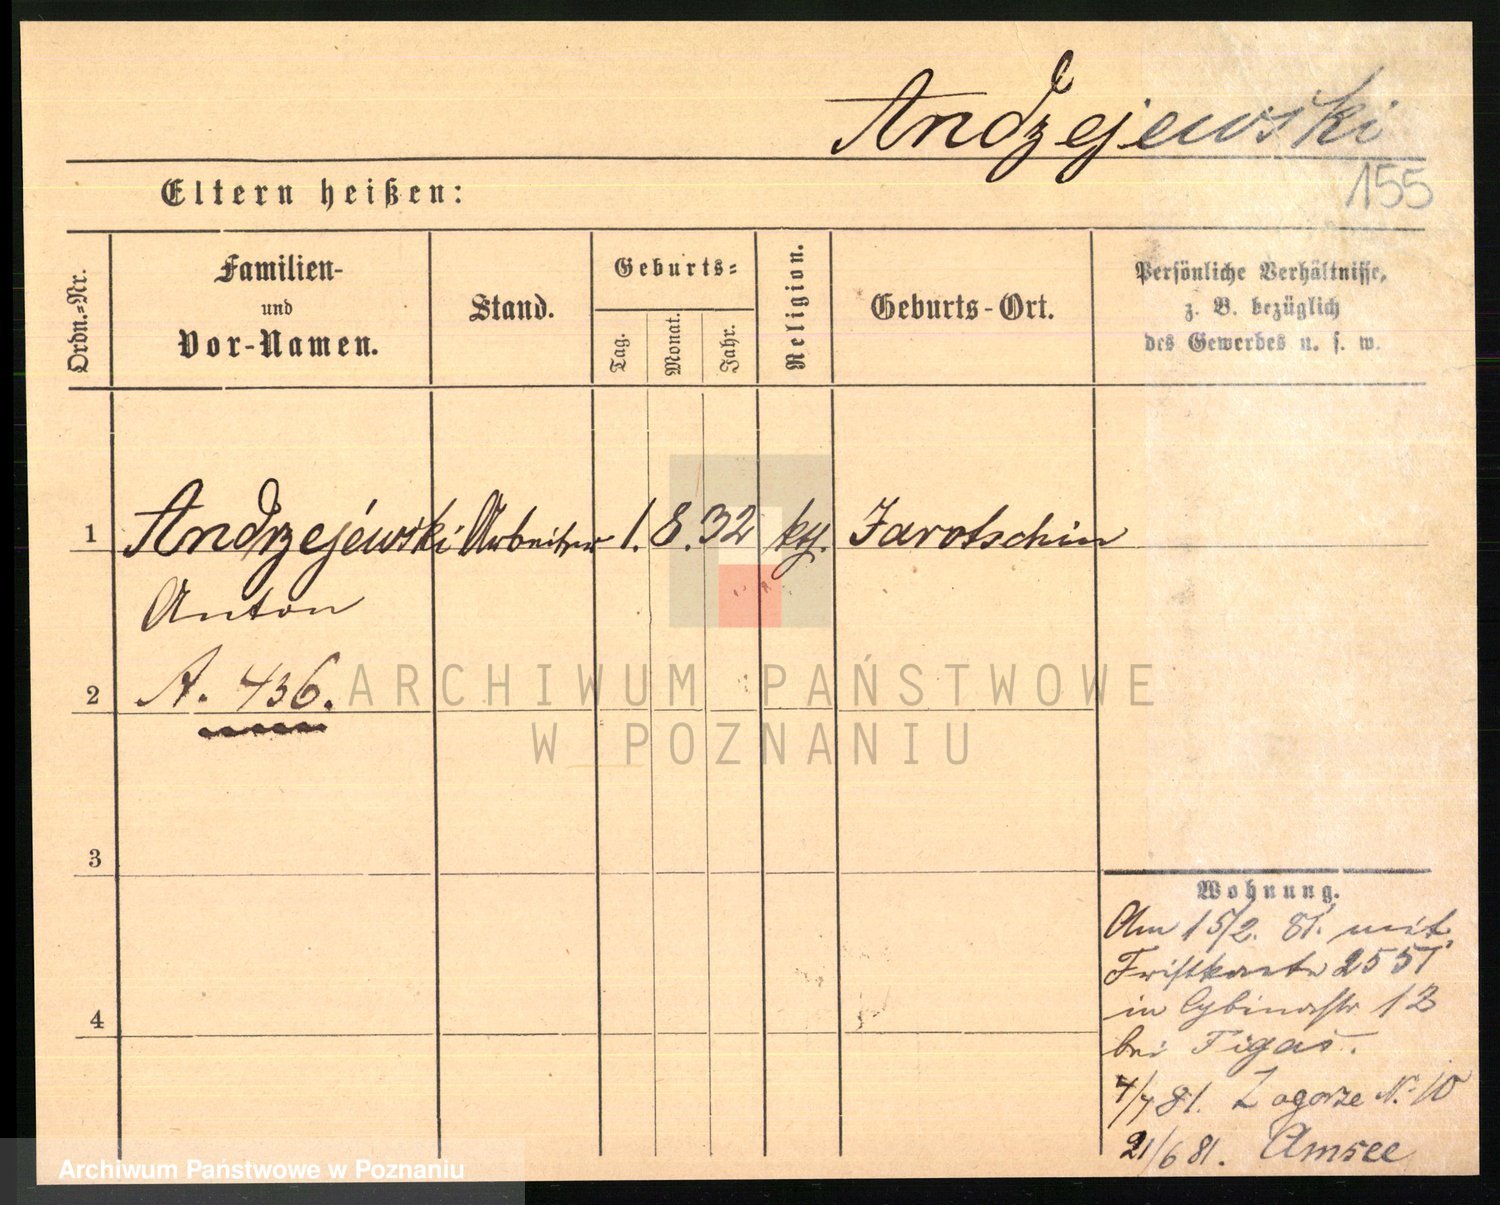 Andrzejewski
155
Eltern heißen:
Ordn.-Nr.
Familien-
und
Vor-Namen.
Stand.
Geburts-
Tag.
Monat.
Jahr.
Religion.
Geburts-Ort.
Persönliche Verhältnisse,
z. B. bezüglich
des Gewerbes u. s. w.
1 Andrzejewski Arbeiter 1. 8. 32 Jarotschin
Anton
2 A. 436.
ARCHIWUM PAŃSTWOWE
W POZNANIU
3
4
Wohnung.
Am 15/2. 81. mit
Fristkarte 2551
in Cybinastr 12
bei Figas.
4/7 81. Zagorze N. 10
21/6 81. Amsee
Archiwum Państwowe w Poznaniu